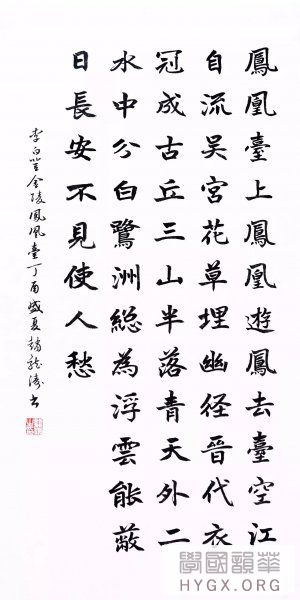 鳳凰臺上鳳凰遊鳳去臺空江
自流吳宮花草埋幽径晉代衣
冠成古丘三山半落青天外二
水中分白鷺洲総為浮雲能蔽
日長安不見使人愁
李白登金陵鳳凰臺丁酉盛夏趙龍濤书
華韻國學
HYGX.ORG